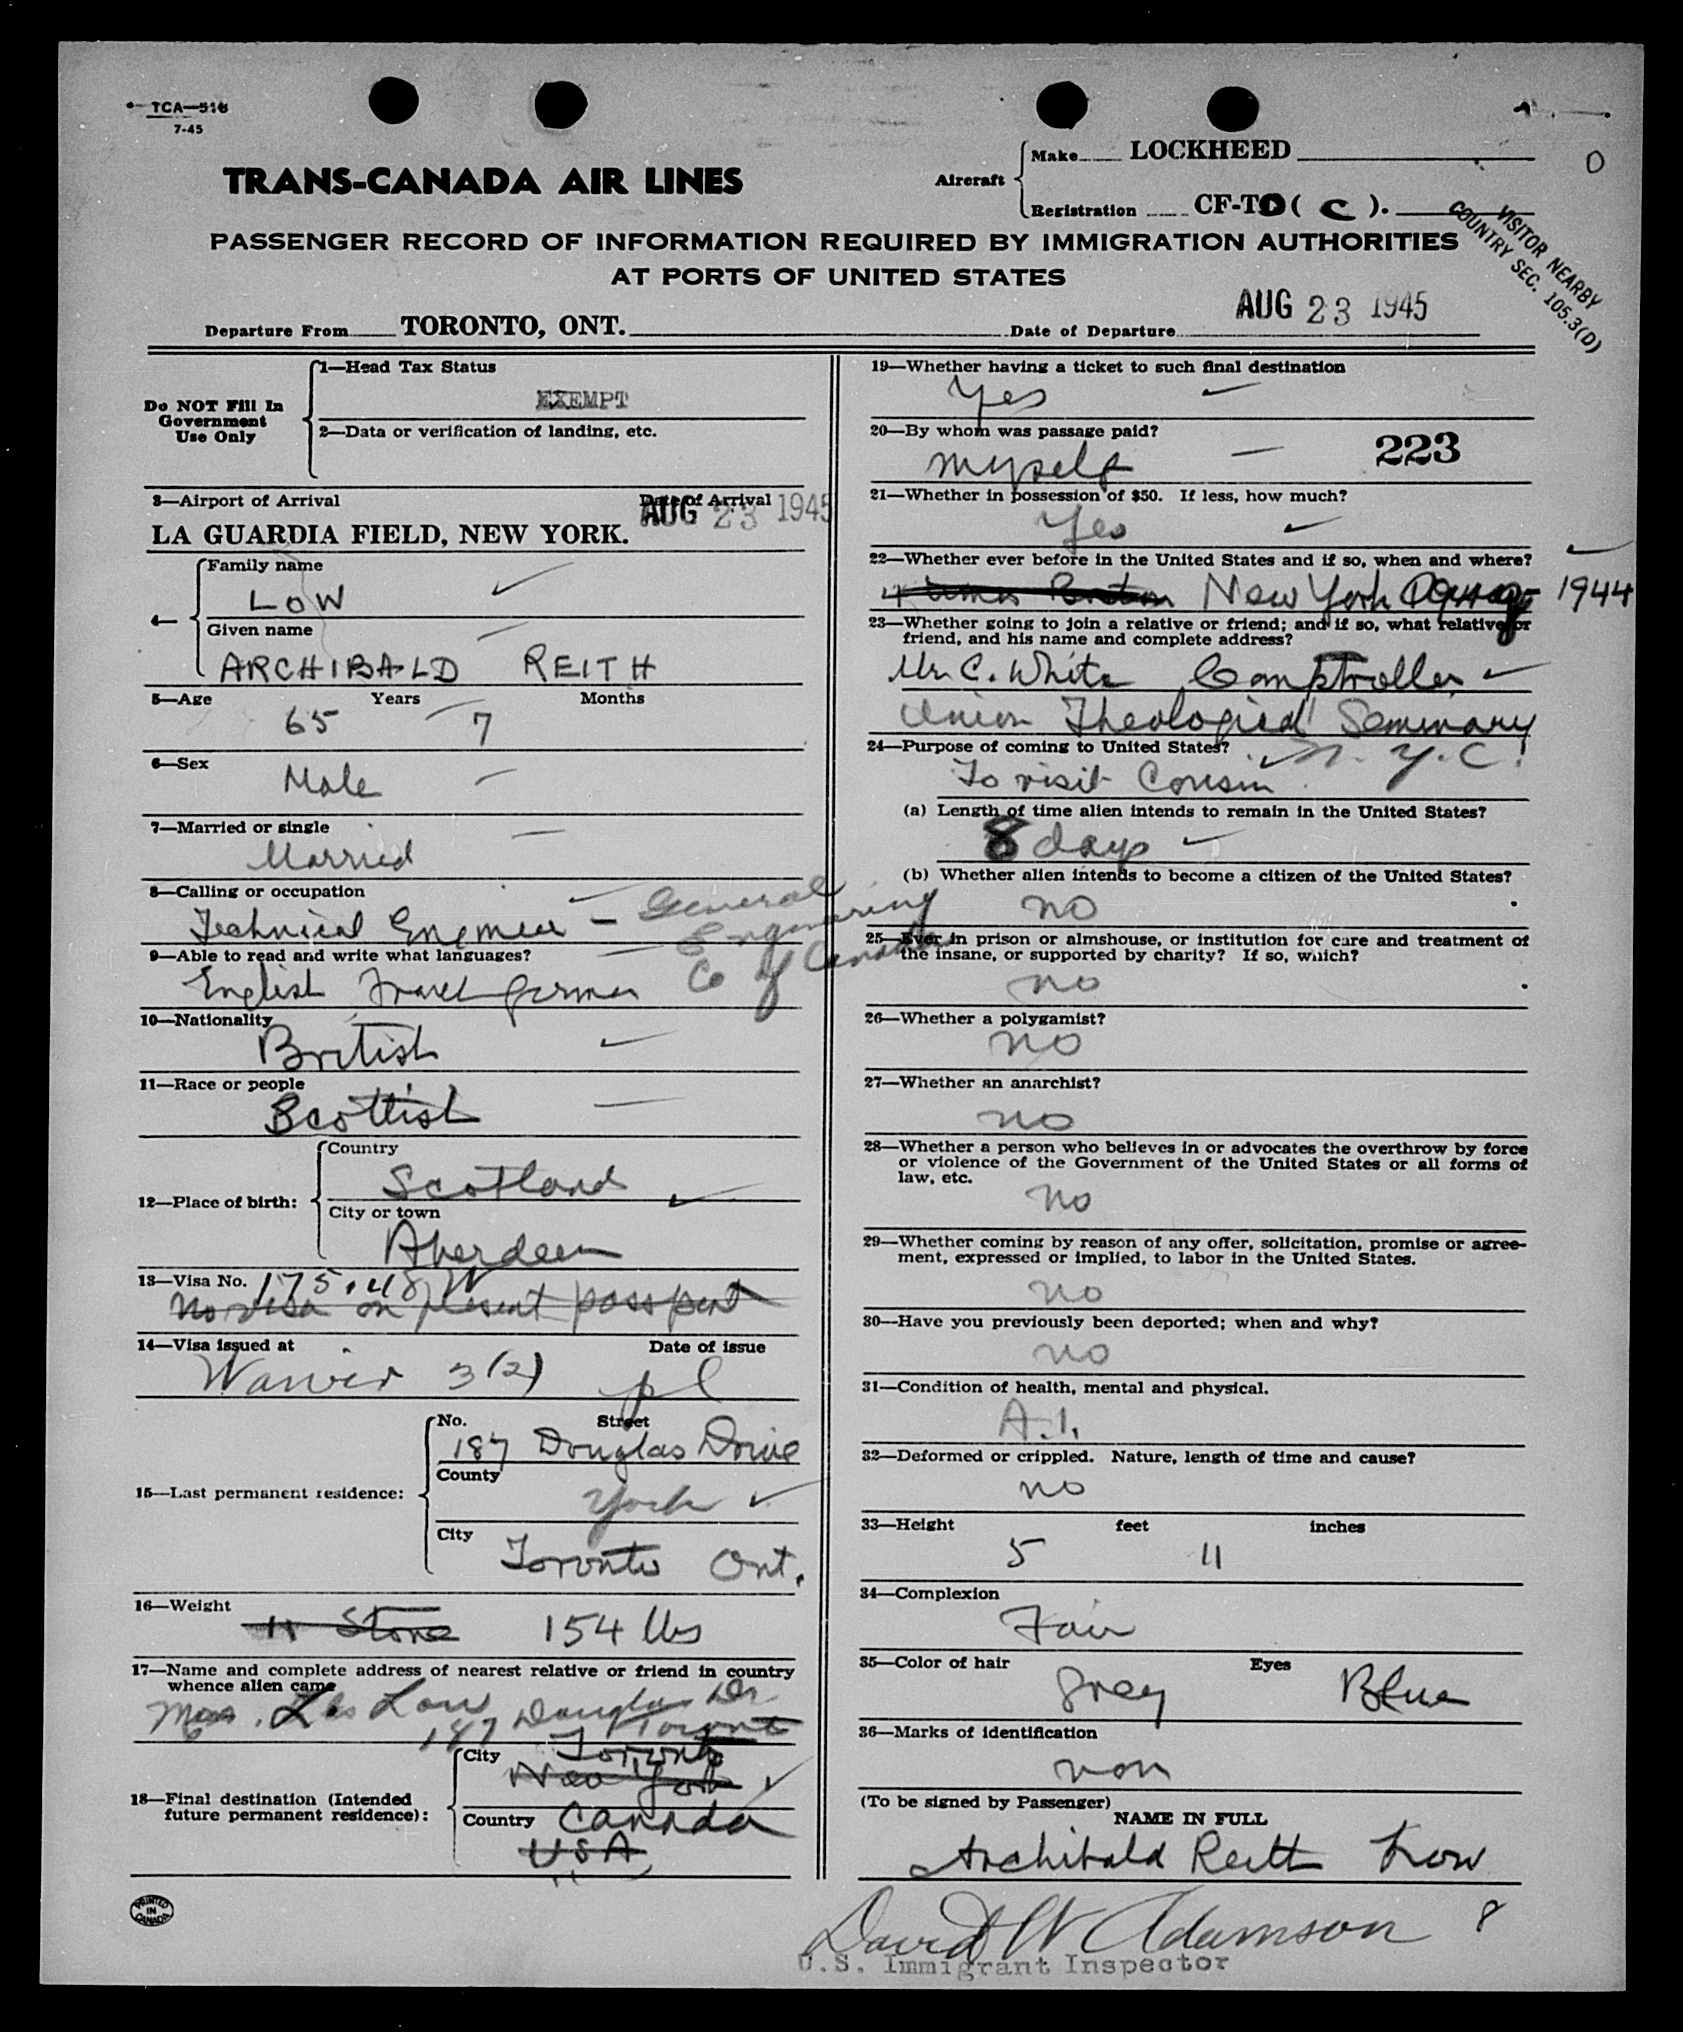 TCA—516
7-45
TRANS-CANADA AIR LINES
Aircraft
Make LOCKHEED
Registration CF-TC ( C ).
0
VISITOR NEARBY
COUNTRY SEC. 105.3(D)
PASSENGER RECORD OF INFORMATION REQUIRED BY IMMIGRATION AUTHORITIES
AT PORTS OF UNITED STATES
Departure From TORONTO, ONT.
Date of Departure AUG 23 1945
Do NOT Fill In
Government
Use Only
1—Head Tax Status
EXEMPT
2—Data or verification of landing, etc.
3—Airport of Arrival Date of Arrival
LA GUARDIA FIELD, NEW YORK. AUG 23 1945
4—
Family name
LOW
Given name
ARCHIBALD REITH
5—Age Years Months
65 7
6—Sex
Male
7—Married or single
Married
8—Calling or occupation
Technical Engineer – General
Engineering
Co of Canada
9—Able to read and write what languages?
English French German
10—Nationality
British
11—Race or people
Scottish
12—Place of birth:
Country
Scotland
City or town
Aberdeen
13—Visa No. 175.48
No visa on present passport
14—Visa issued at Date of issue
Waiver 3(2) pl
15—Last permanent residence:
No. Street
187 Douglas Drive
County
York
City
Toronto Ont.
16—Weight
11 Stone 154 lbs
17—Name and complete address of nearest relative or friend in country
whence alien came
Low Douglas Dr
187 Toronto
18—Final destination (Intended
future permanent residence):
City Toronto
New York
Country Canada
USA
PRINTED
IN
CANADA
19—Whether having a ticket to such final destination
Yes
20—By whom was passage paid?
myself 223
21—Whether in possession of $50. If less, how much?
Yes
22—Whether ever before in the United States and if so, when and where?
4 times Boston New York 1944
23—Whether going to join a relative or friend; and if so, what relative or
friend, and his name and complete address?
Mr C. White Comptroller
Union Theological Seminary
N.Y.C.
24—Purpose of coming to United States?
To visit Cousin
(a) Length of time alien intends to remain in the United States?
8 days
(b) Whether alien intends to become a citizen of the United States?
no
25—Ever in prison or almshouse, or institution for care and treatment of
the insane, or supported by charity? If so, which?
no
26—Whether a polygamist?
no
27—Whether an anarchist?
no
28—Whether a person who believes in or advocates the overthrow by force
or violence of the Government of the United States or all forms of
law, etc.
no
29—Whether coming by reason of any offer, solicitation, promise or agree-
ment, expressed or implied, to labor in the United States.
no
30—Have you previously been deported; when and why?
no
31—Condition of health, mental and physical.
A.1.
32—Deformed or crippled. Nature, length of time and cause?
no
33—Height feet inches
5 11
34—Complexion
Fair
35—Color of hair Eyes
Grey Blue
36—Marks of identification
non
(To be signed by Passenger)
NAME IN FULL
Archibald Reith Low
David W Adamson 8
U.S. Immigrant Inspector